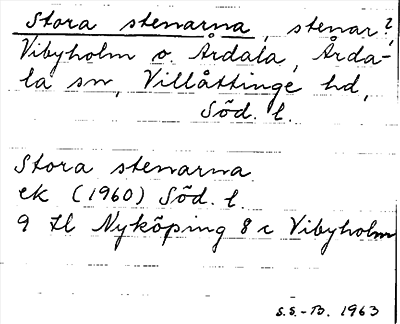 Stora stenarna, stenar?,
Vibyholm o. Årdala, Årda-
la sn, Villåttinge hd,
Söd. l.
Stora stenarna
ek (1960) Söd. l.
9 H Nyköping 8 c Vibyholm
S.S.-B. 1963